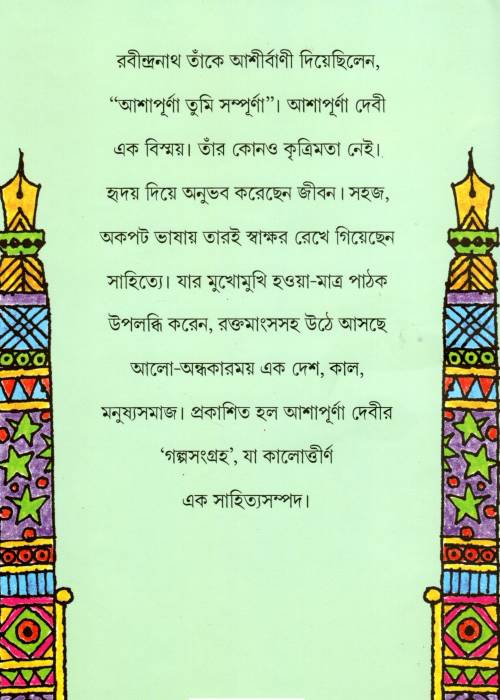 রবীন্দ্রনাথ তাঁকে আশীর্বাণী দিয়েছিলেন,
“আশাপূর্ণা তুমি সম্পূর্ণা”। আশাপূর্ণা দেবী
এক বিস্ময়। তাঁর কোনও কৃত্রিমতা নেই।
হৃদয় দিয়ে অনুভব করেছেন জীবন। সহজ,
অকপট ভাষায় তারই স্বাক্ষর রেখে গিয়েছেন
সাহিত্যে। যার মুখোমুখি হওয়া-মাত্র পাঠক
উপলব্ধি করেন, রক্তমাংসসহ উঠে আসছে
আলো-অন্ধকারময় এক দেশ, কাল,
মনুষ্যসমাজ। প্রকাশিত হল আশাপূর্ণা দেবীর
‘গল্পসংগ্রহ’, যা কালোত্তীর্ণ
এক সাহিত্যসম্পদ।